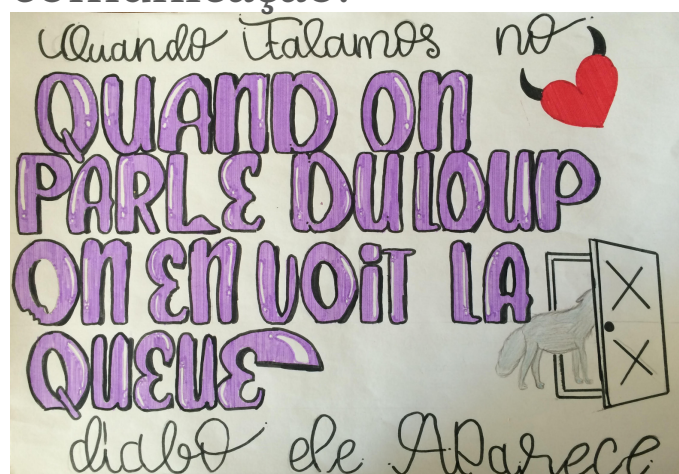 comunicação.
Quando Falamos no
QUAND ON
PARLE DU LOUP
ON EN VOIT LA
QUEUE
diabo ele Aparece